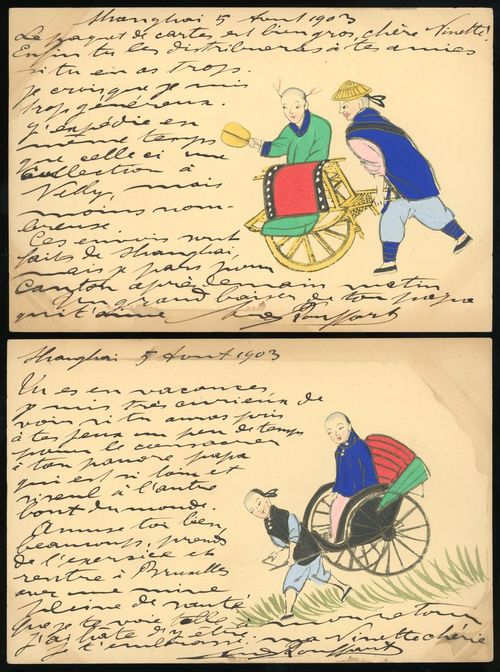 Shanghai 5 Aout 1903
Le paquet de cartes est bien gros, chère Ninette!
Enfin tu les distribueras à tes amies
si tu en as trop.
Je crois que je suis
trop généreux.
J'expédie en
même temps
que celle ci une
collection à
Nelly, mais
moins nom-
breuse.
Ces envois sont
faits de Shanghai,
mais je pars pour
Canton après demain matin
Un grand baiser de ton papa
qui t'aime
Shanghai 5 Aout 1903
Tu es en vacances
je suis très curieux de
voir si tu auras pris
à tes jeux un peu de temps
pour le consacrer
à ton pauvre papa
qui est si loin et
si seul à l'autre
bout du monde.
Amuse toi bien,
beaucoup, prends
de l'exercice et
rentre à Bruxelles
avec une mine
pleine de santé
Que je te voie belle à mon retour
j'ai hâte d'y être
je t'embrasse ma Ninette chérie